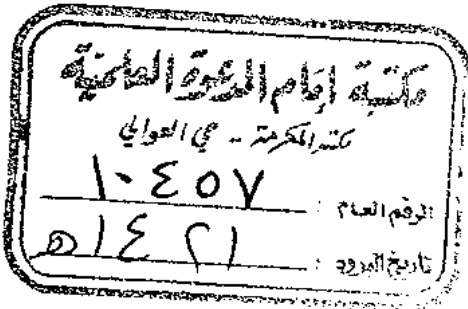 مكتبة إمام الدعوة العلمية
مكة المكرمة - حي العوالي
الرقم العام : ١٠٤٥٧
تاريخ الورود : ١٤٢١ هـ